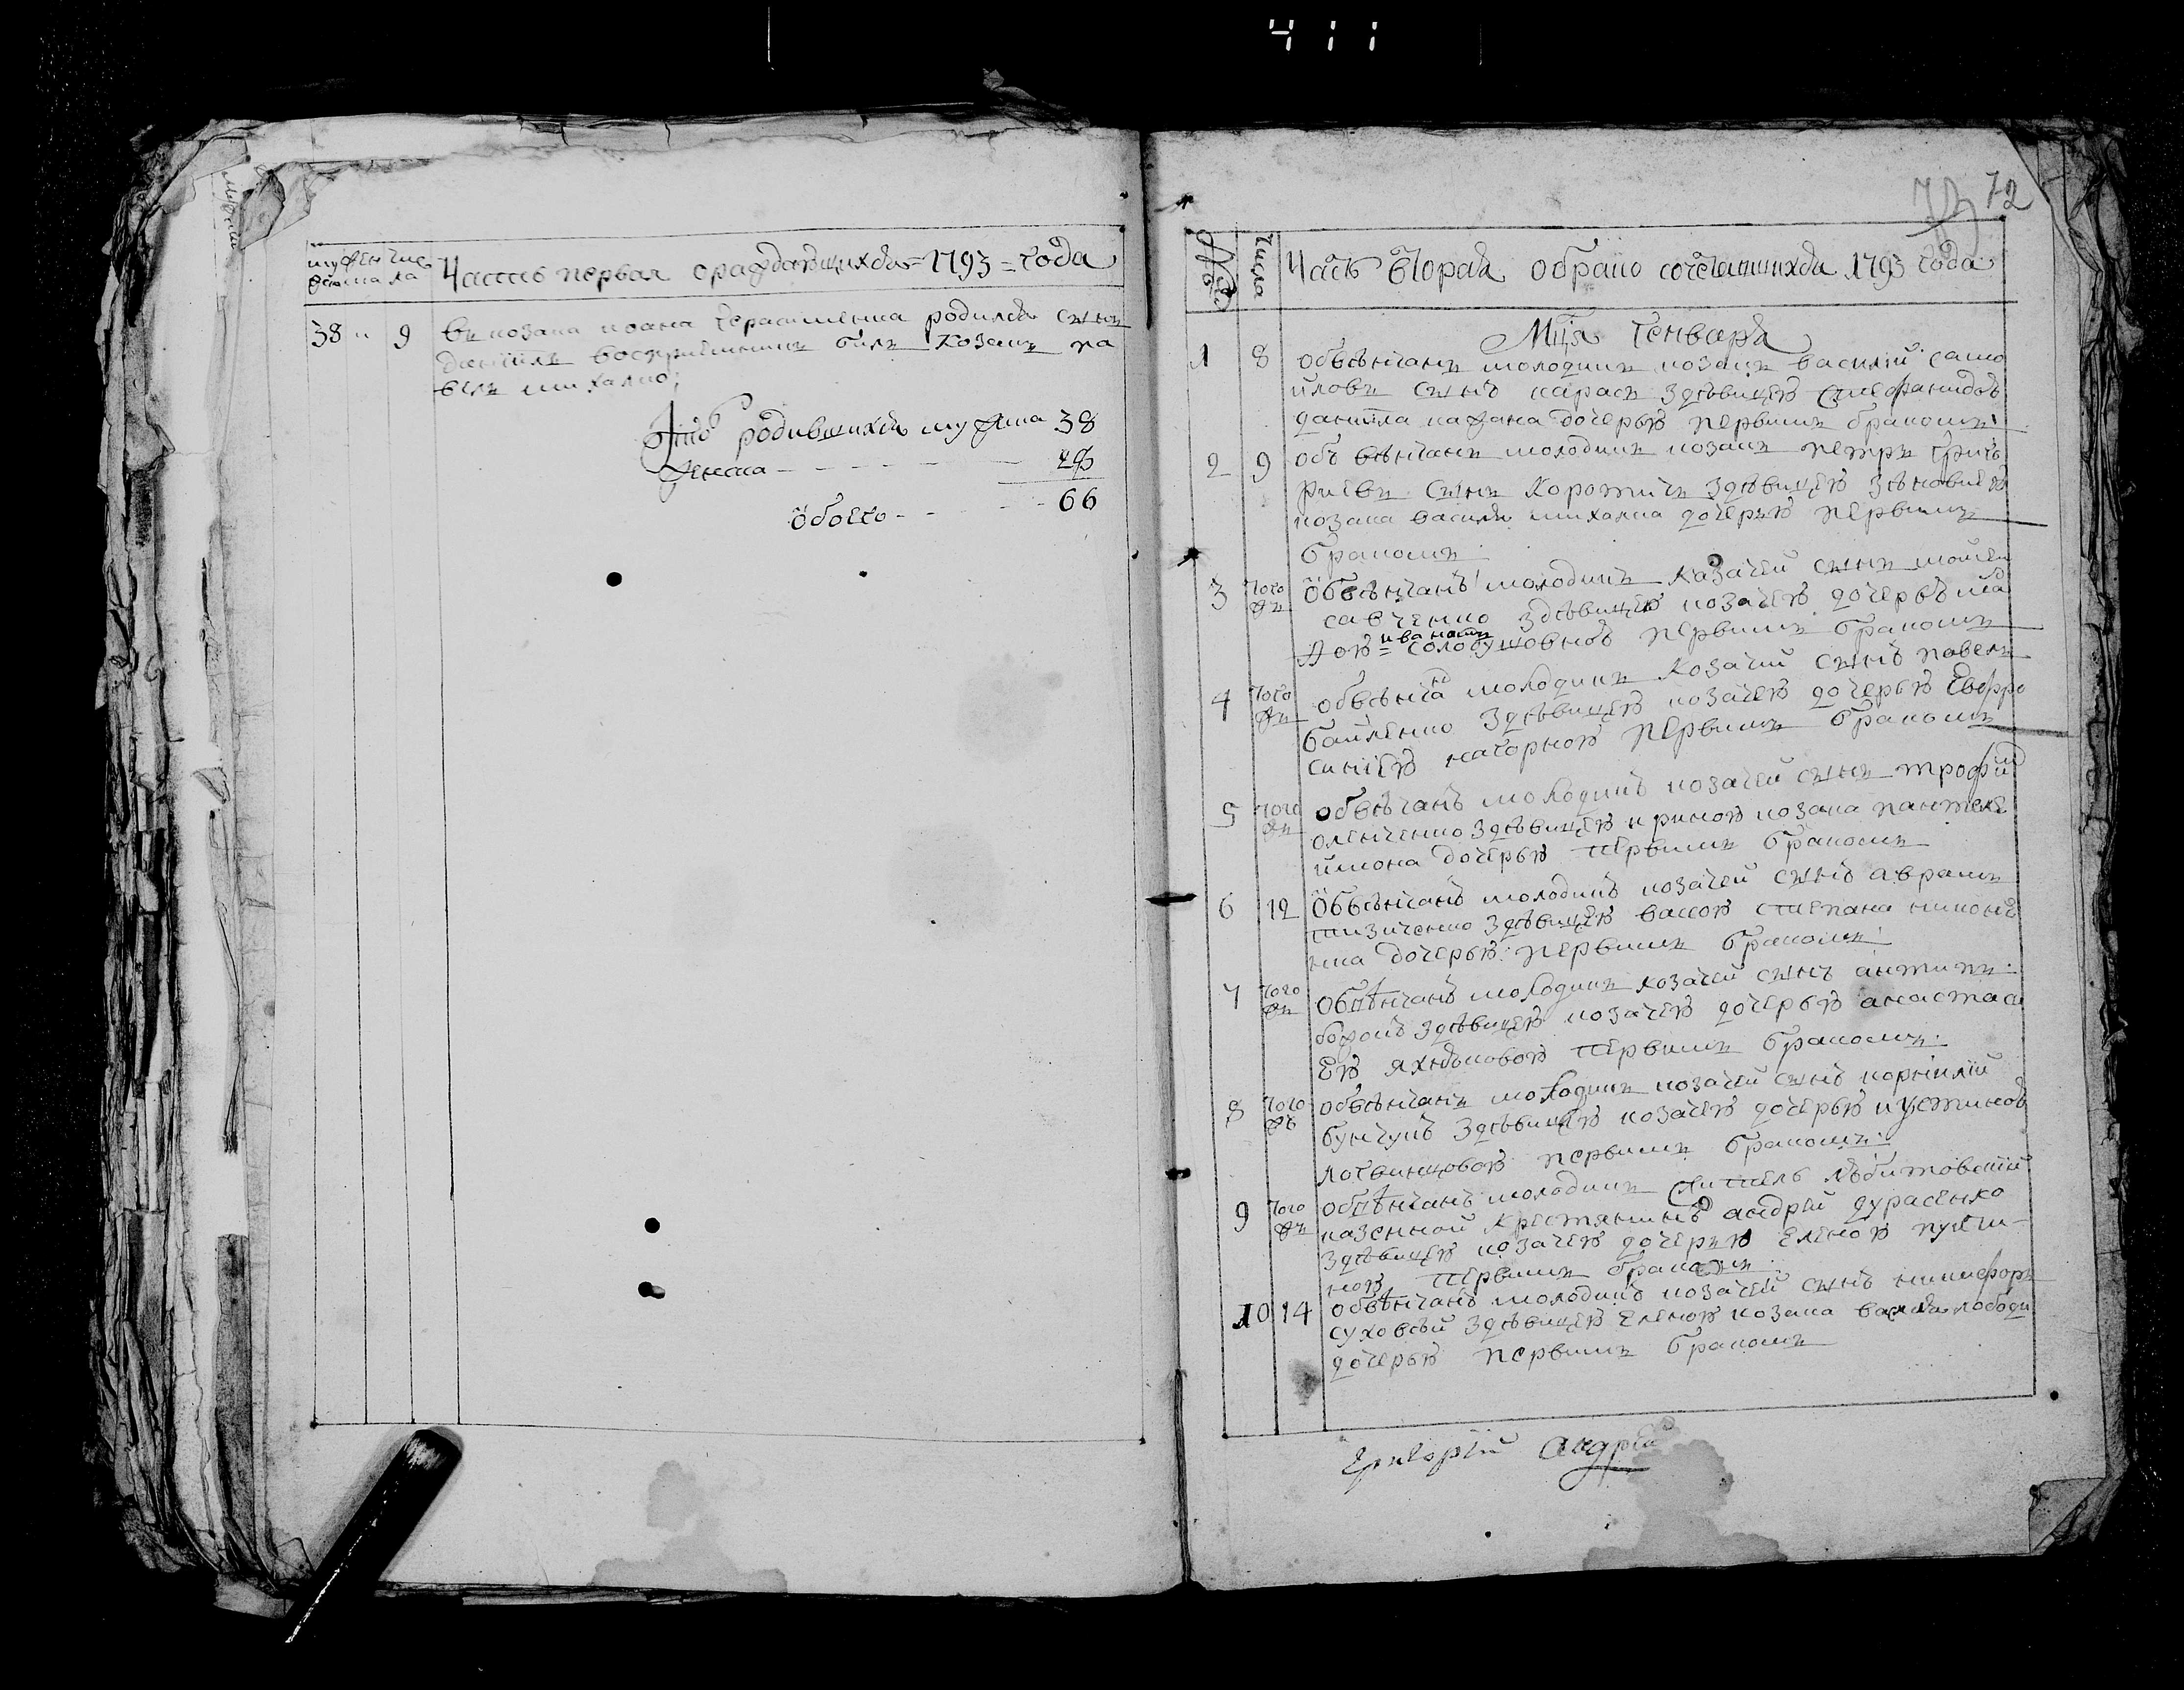 411
Часть первая ораждающихся = 1793 = года
38 " 9 въ козака иоана герасименка родился сынъ
даниилъ восприемникъ билъ козакъ па
велъ михалко;
родившихся мужеска 38
женска - - - - - 28
обоего - - - - - 66
72
№ числа Часть вторая обрако сочетавшихся 1793 года
Мця Генваря
1 8 обвѣнчанъ молодикъ козакъ василий само
йловъ сынъ карась здѣвицею стефанидою
данила кажана дочерью первимъ бракомъ
2 9 обвѣнчанъ молодикъ козакъ петръ григо
риевъ сынъ коротичъ здѣвицею зѣновиею
козака василя михалка дочерью первимъ
бракомъ
3 того дн обвѣнчанъ молодикъ козачей сынъ моисей
савченко здѣвицею козачею дочерью
первимъ бракомъ
4 того дн обвѣнчанъ молодикъ козачий сынъ павелъ
байленко здѣвицею козачею дочерью евфро
синиею нагорною первимъ бракомъ
5 того дн обвѣнчанъ молодикъ козачей сынъ трофим
оленченко здѣвицею ириною козака пантеле
ймона дочерью первимъ бракомъ
6 12 обвѣнчанъ молодикъ козачей сынъ аврамъ
здѣвицею васою степана никоне
нка дочерью первимъ бракомъ
7 того дн обвѣнчанъ молодикъ козачей сынъ антипъ
здѣвицею козачею дочерью анастаси
ею яхнѣковою первимъ бракомъ
8 того дн обвѣнчанъ молодикъ козачей сынъ корнилий
бунчукъ здѣвицею козачею дочерью иустиною
логвинцовою первимъ бракомъ
9 того дн обвѣнчанъ молодикъ житель
казенной крестянинъ андрей дурасенко
здѣвицею козачею дочерью еленою
ною первимъ бракомъ
10 14 обвѣнчанъ молодикъ козачей сынъ никифоръ
суховѣй здѣвицею еленою козака василя лободи
дочерью первимъ бракомъ
григорий андрей